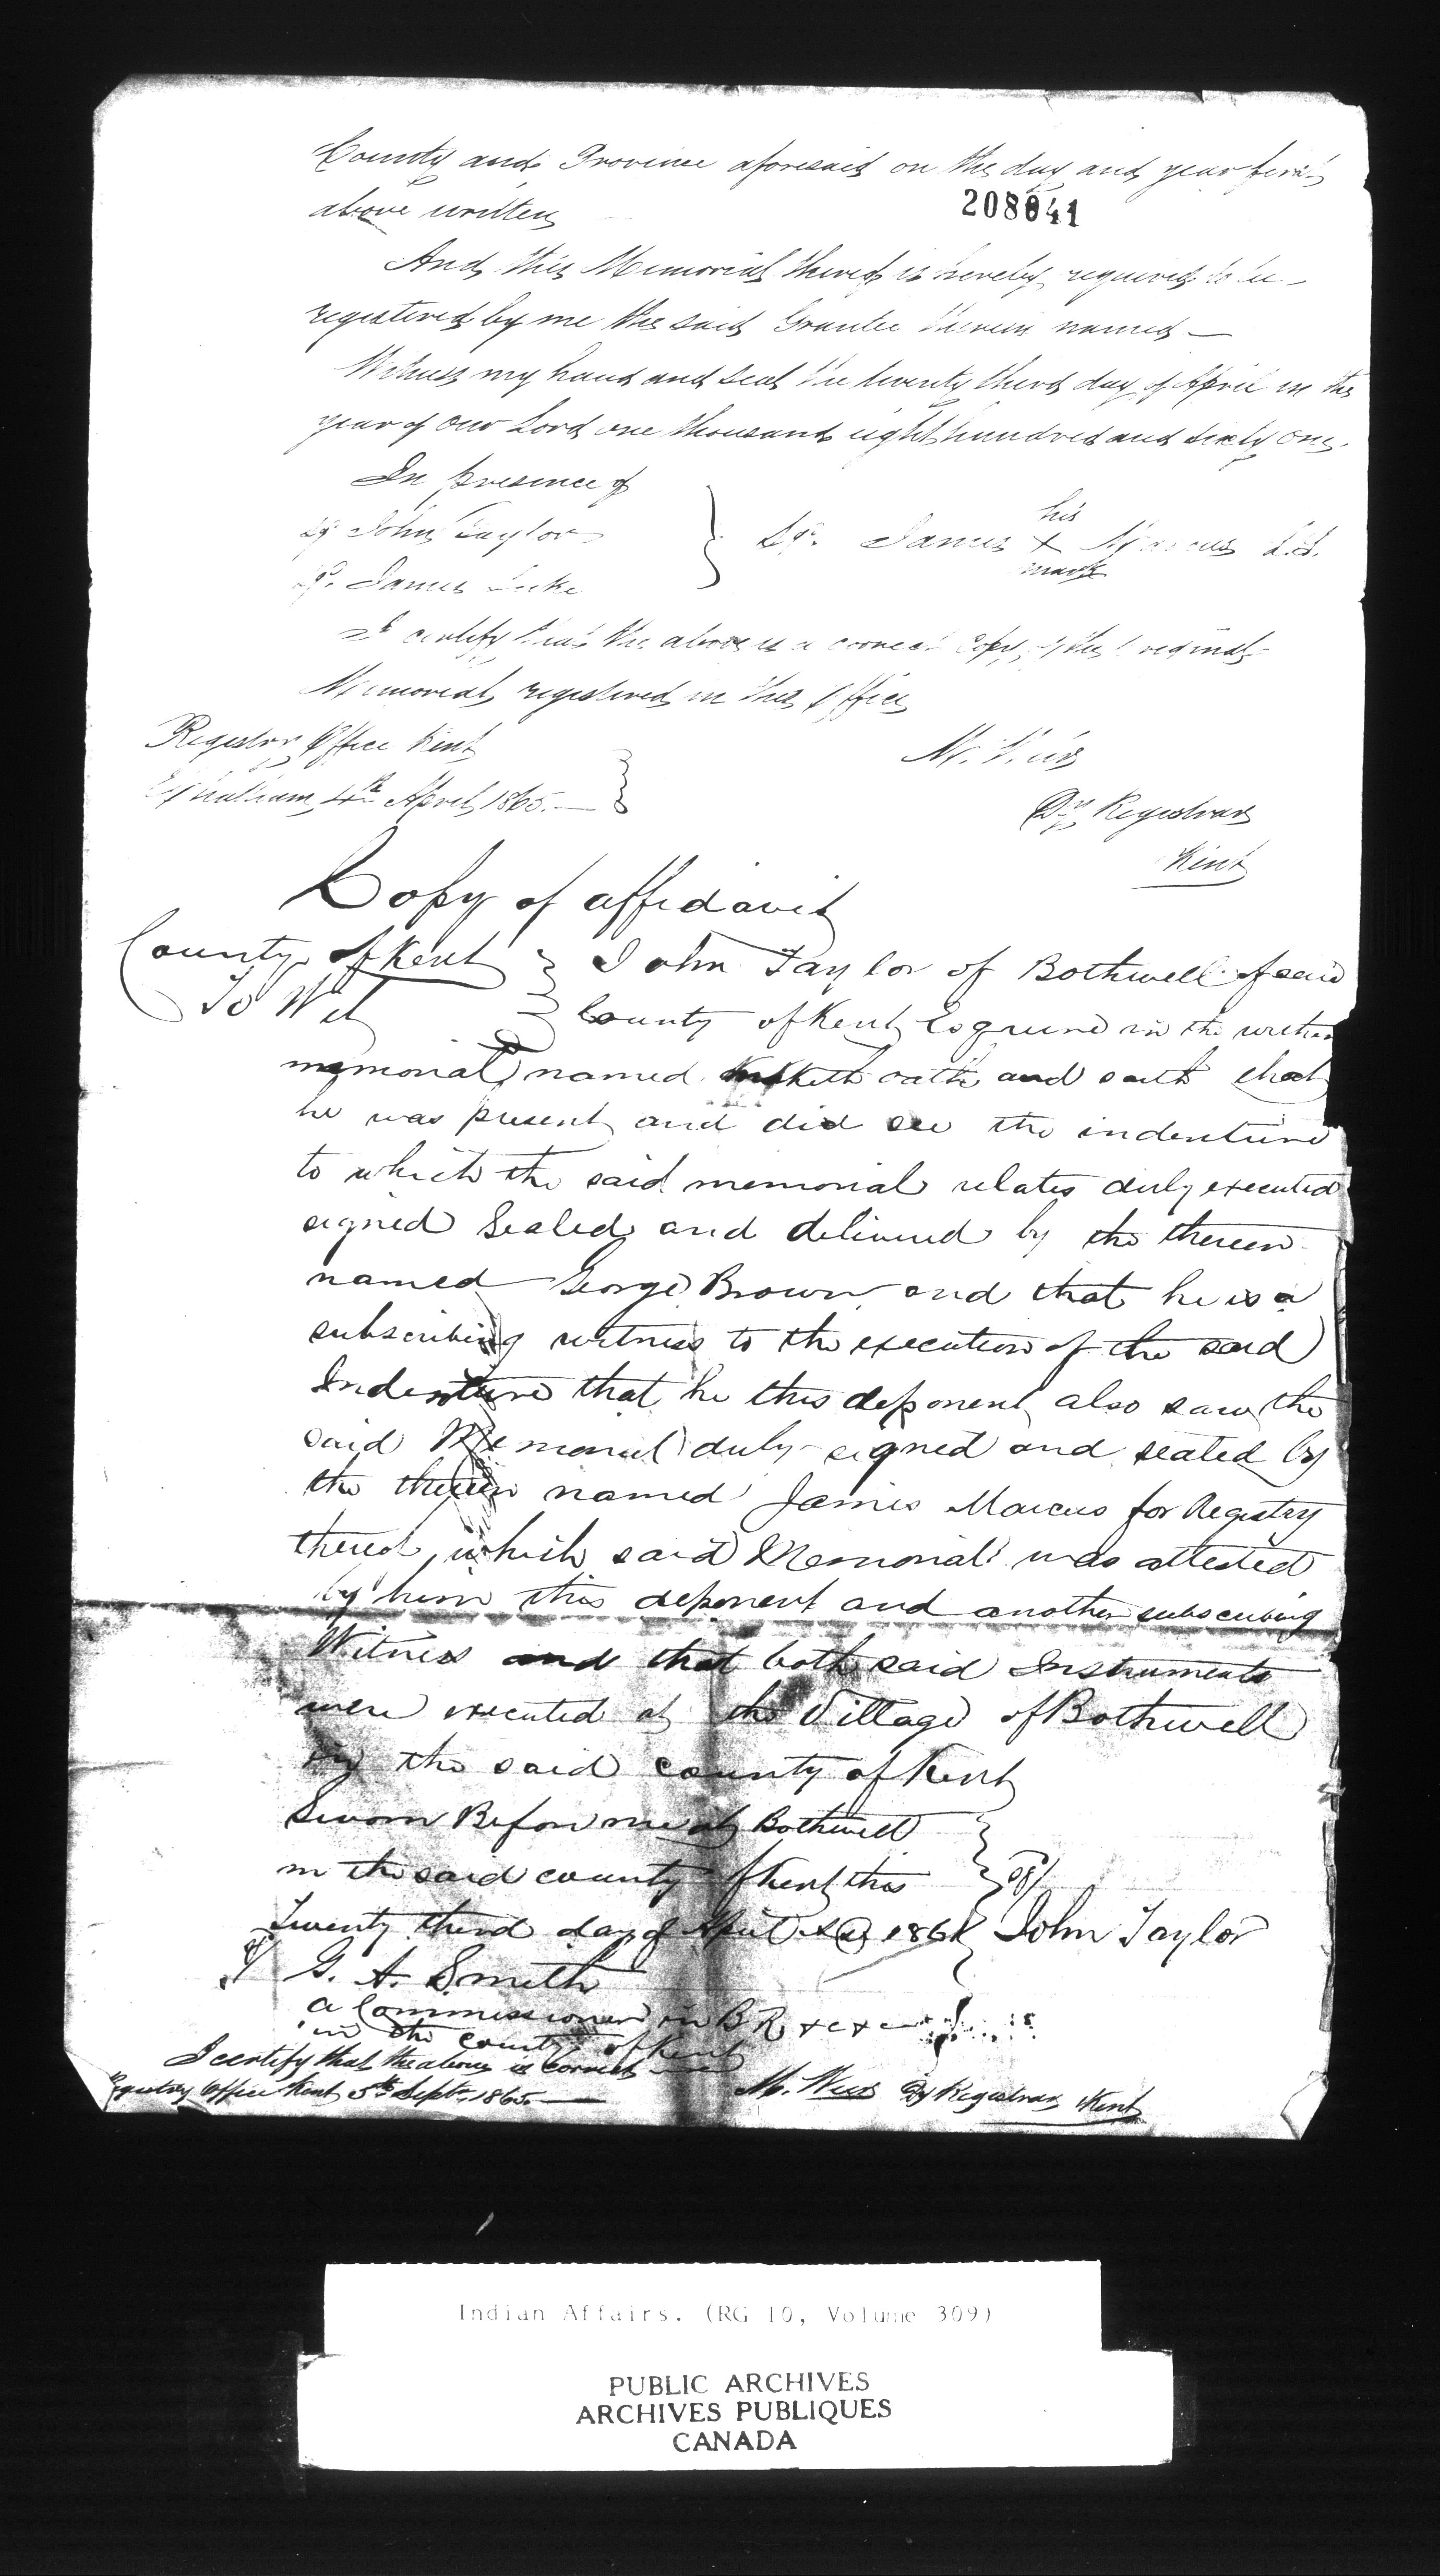 County and Province aforesaid on the day and year first
208041
above written
And this Memorial thereof is hereby required to be
registered by me the said Grantee therein named —
Witness my hand and seal the twenty third day of April in the
year of our Lord one thousand eight hundred and sixty one.
In presence of
Sg John Taylor
Sg. James
his
Sg. James X Marcus L.S.
mark
I certify that the above is a correct copy of the original
Memorial registered in this Office
Registry Office Kent
Chatham, 4th April, 1865. —
M. Weir
Dy Registrar
Kent
Copy of affidavit
County of Kent } I John Taylor of Bothwell of said
To Wit } County of Kent Esquire in the within
memorial named maketh oath and saith that
he was present and did see the indenture
to which the said memorial relates duly executed
signed Sealed and delivered by the therein
named George Brown and that he is a
subscribing witness to the execution of the said
Indenture that he this deponent also saw the
said Memorial duly signed and sealed by
the therein named James Marcus for Registry
thereof, which said Memorial was attested
by him this deponent and another subscribing
Witness and that both said Instruments
were executed at the Village of Bothwell
in the said county of Kent
Sworn Before me at Bothwell
in the said county of Kent this
Twenty third day of April 1861 John Taylor
G. A. Smith
a Commissioner in B R &c &c
in the county of Kent
I certify that the above is correct
Registry Office Kent 5th Sept. 1865. —
M. Weir Dy Registrar Kent
Indian Affairs. (RG 10, Volume 309)
PUBLIC ARCHIVES
ARCHIVES PUBLIQUES
CANADA